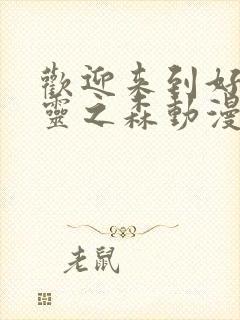 歡迎来到好
靈之森動漫
老鼠